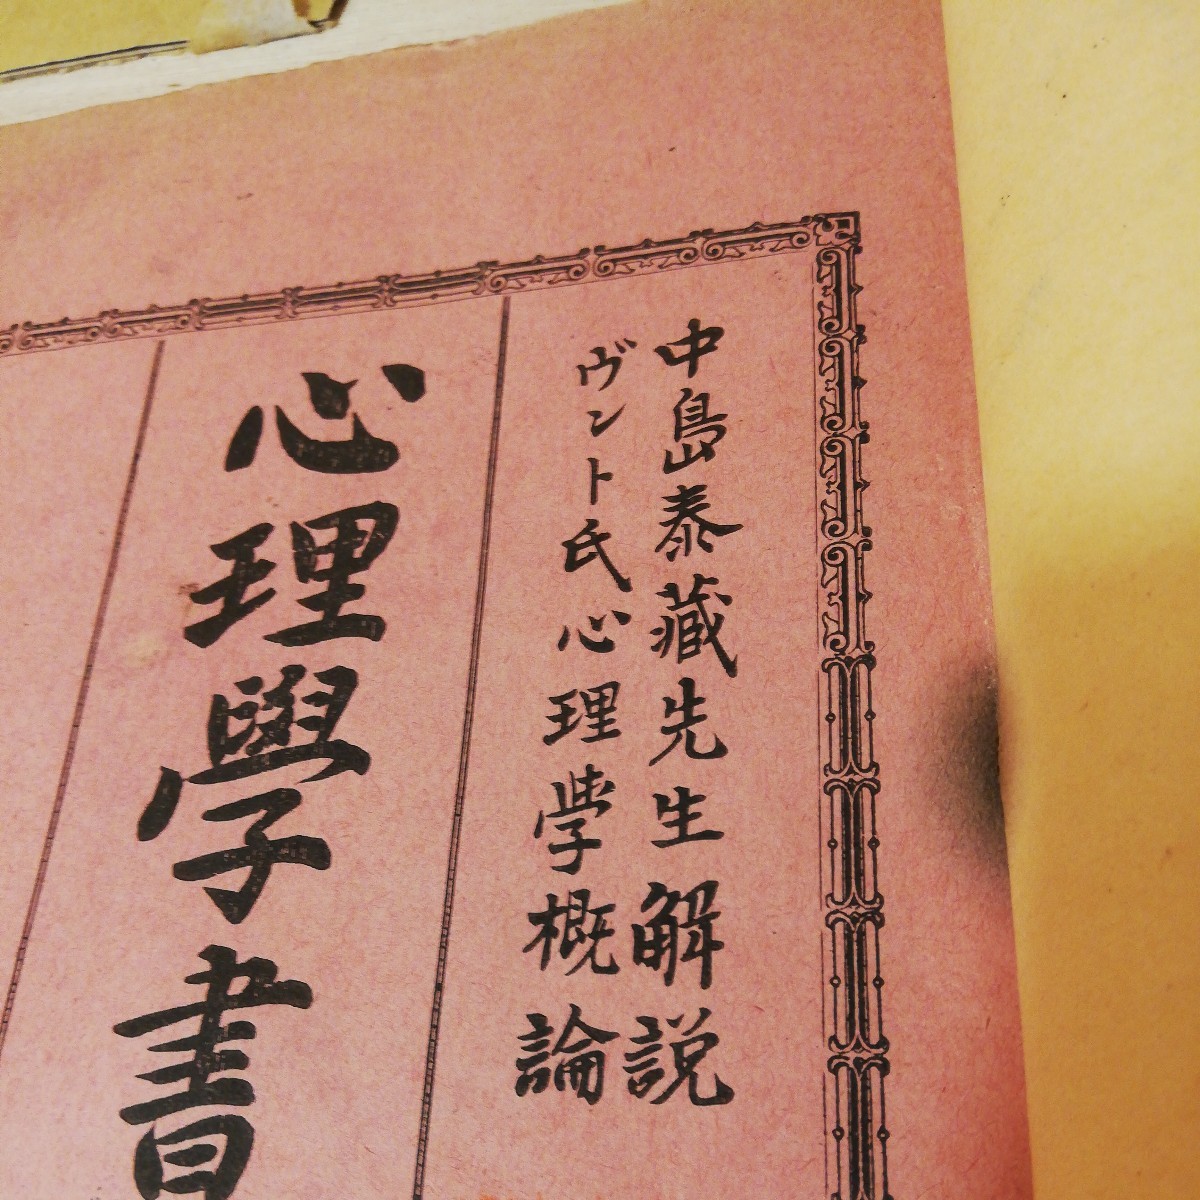 中島泰藏先生解説
ヴント氏心理学概論
心理學書